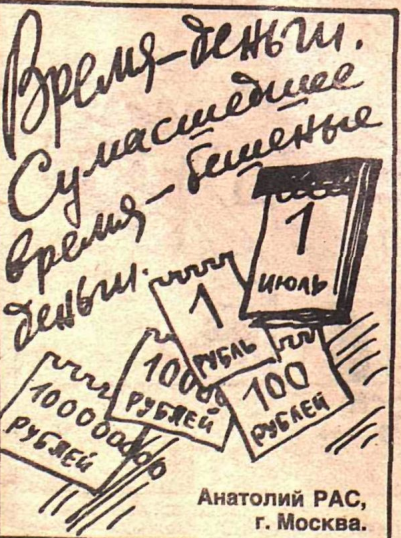 Время–деньги.
Сумасшедшее
время–бешеные
деньги.
1
июль
1
рубль
100
рублей
1000
рублей
10000000
рублей
Анатолий РАС,
г. Москва.